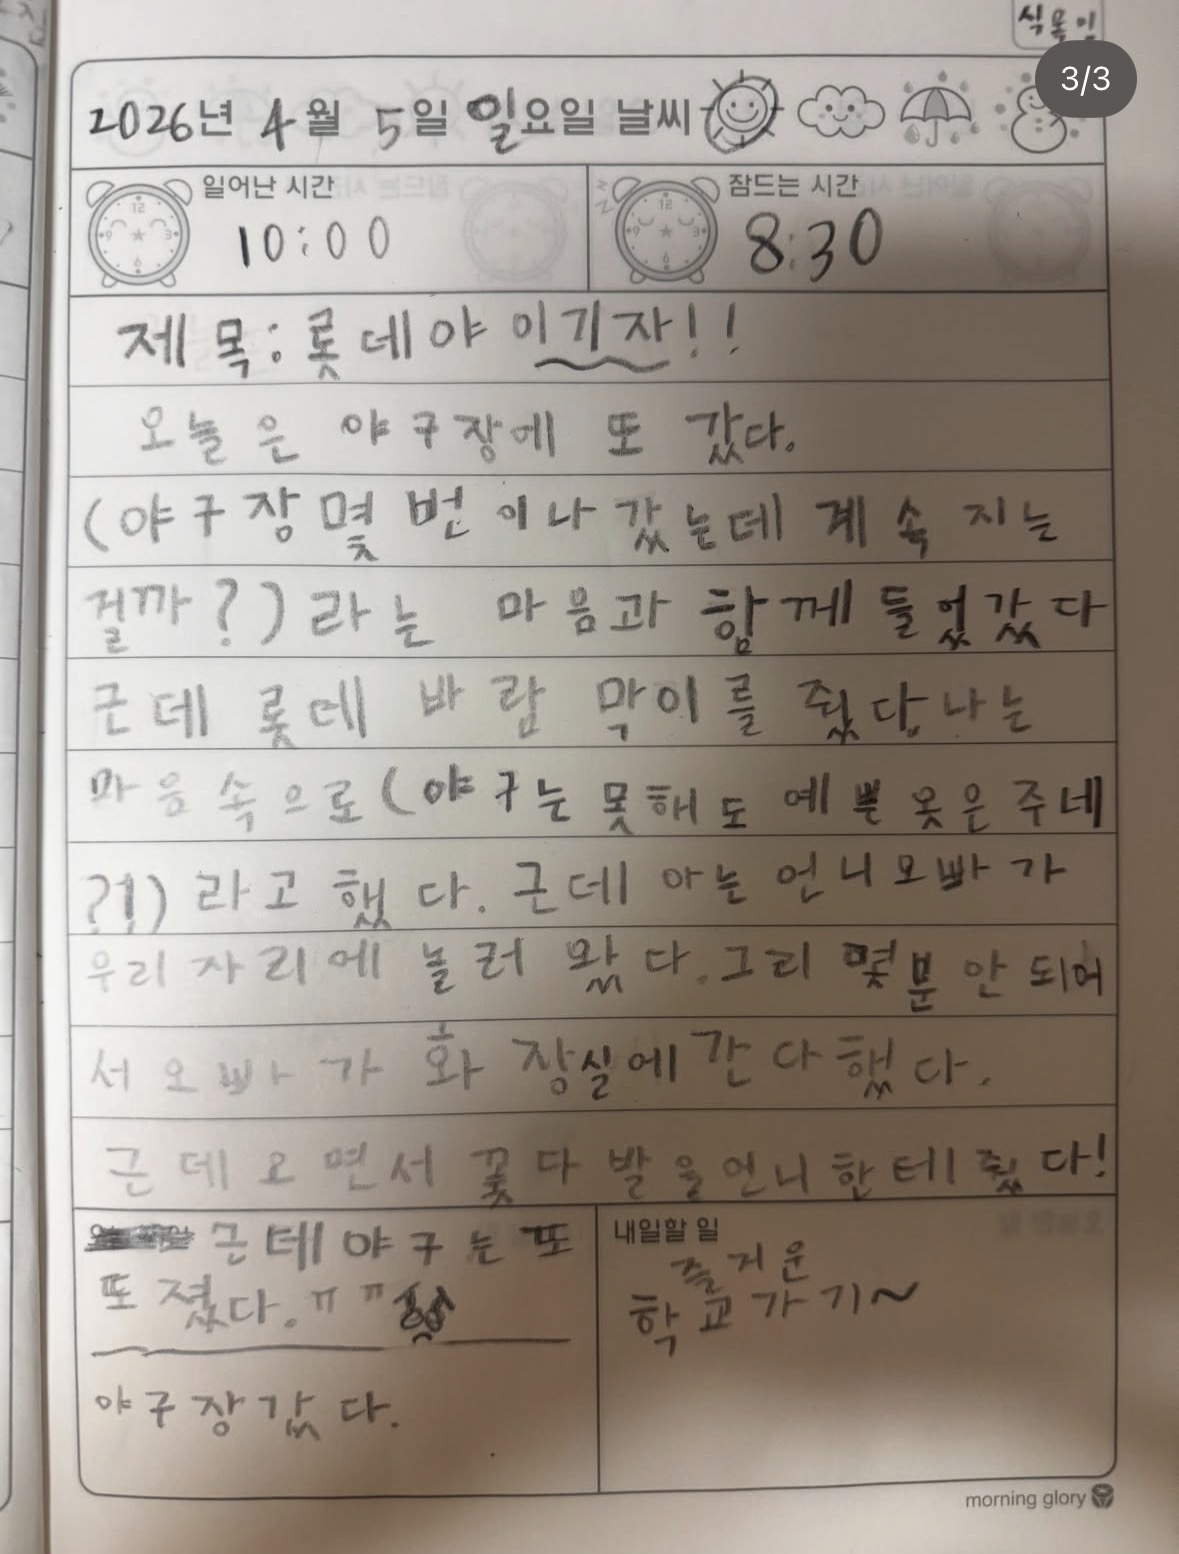 식목일
3/3
2026년 4월 5일 일요일 날씨
일어난 시간
10:00
잠드는 시간
8:30
제목: 롯데야 이기자!!
오늘은 야구장에 또 갔다.
(야구장 몇 번이나 갔는데 계속 지는
걸까?)라는 마음과 함께 들었갔다
근데 롯데 바람 막이를 줬다. 나는
마음 속으로 (야구는 못해도 예쁜 옷은 주네
?!)라고 했다. 근데 아는 언니오빠가
우리 자리에 놀러 왔다. 그리 몇분 안 되어
서 오빠가 화장실에 간다했다.
근데 오면서 꽃다발을 언니한테 줬다!
근데 야구는 또
또 졌다. ㅠㅠ
야구장 갔다.
내일할 일
즐거운
학교가기~
morning glory